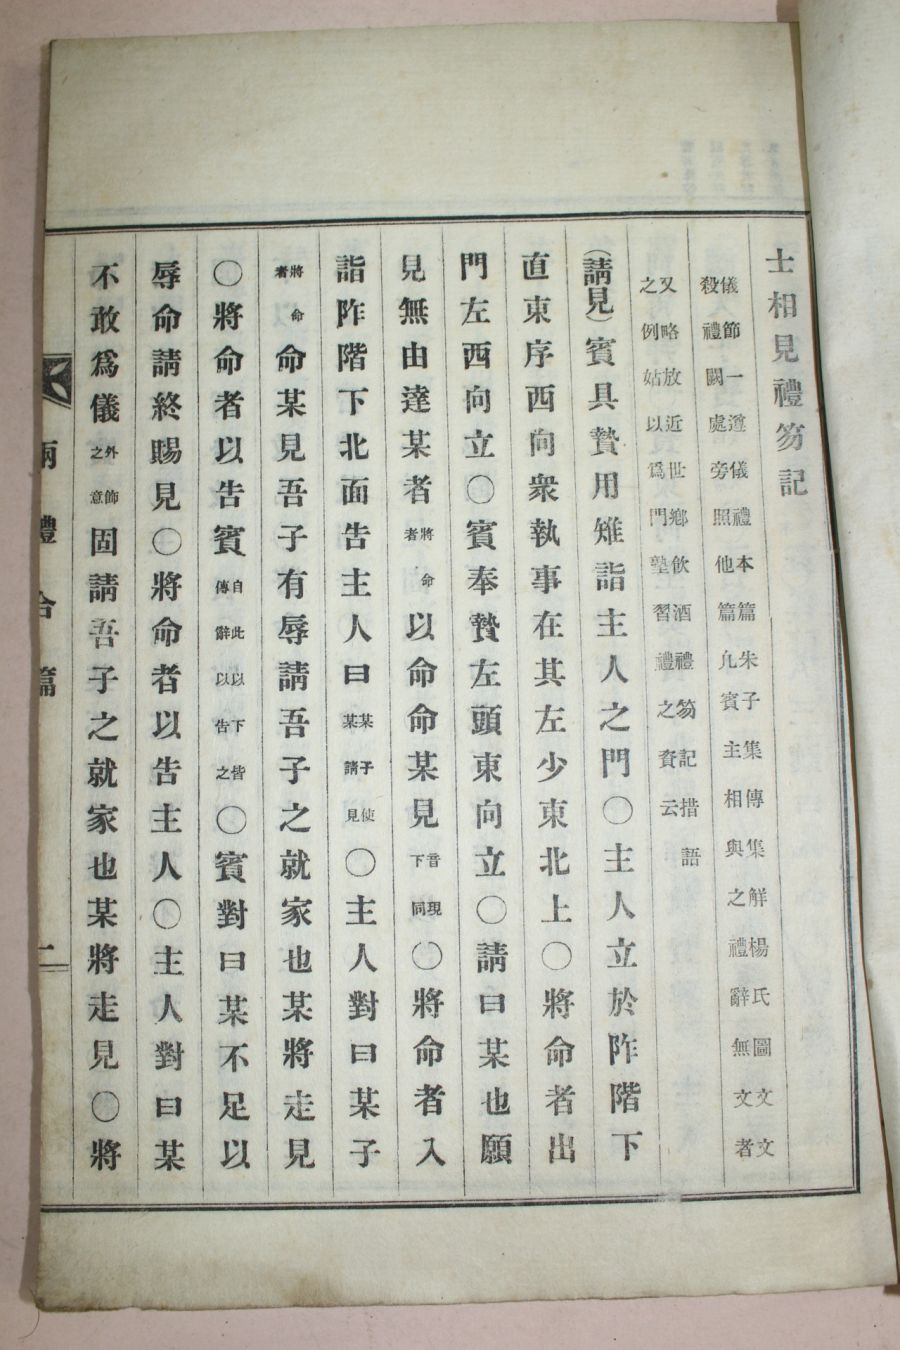 士相見禮笏記
儀節一遵儀禮本篇朱子集傳集觧楊氏圖文文
殺禮闕處旁照他篇凡賓主相與之禮辭無文者
又略放近世鄉飲酒禮笏記措語
之例姑以爲門塾習禮之資云
(請見)賓具贄用雉詣主人之門〇主人立於阼階下
直東序西向衆執事在其左少東北上〇將命者出
門左西向立〇賓奉贄左頭東向立〇請曰某也願
見無由達某者將命者以命命某見音現下同〇將命者入
詣阼階下北面告主人曰某子使某請見〇主人對曰某子
將命者命某見吾子有辱請吾子之就家也某將走見
〇將命者以告賓自此以下皆傳辭以告之〇賓對曰某不足以
辱命請終賜見〇將命者以告主人〇主人對曰某
不敢爲儀外飾之意固請吾子之就家也某將走見〇將
兩禮合篇